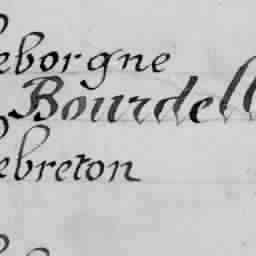 eborgne
Bourdell
ebreton